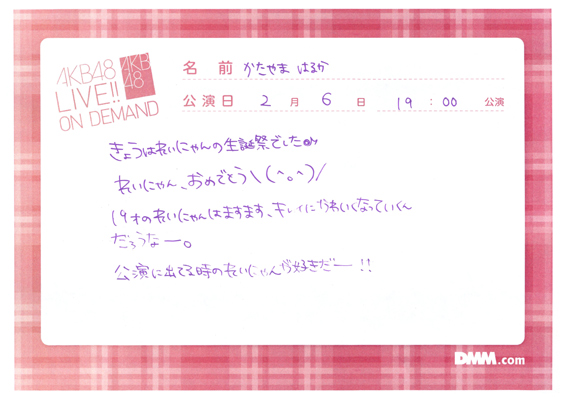 AKB48
LIVE!!
ON DEMAND
AKB
48
名前 かたやま はるか
公演日 2月6日 19:00 公演
きょうはれいにゃんの生誕祭でした
れいにゃん、おめでとう\(^o^)/
19才のれいにゃんはますます、キレイにかわいくなっていくん
だろうなー。
公演に出てる時のれいにゃんが好きだー!!
DMM.com